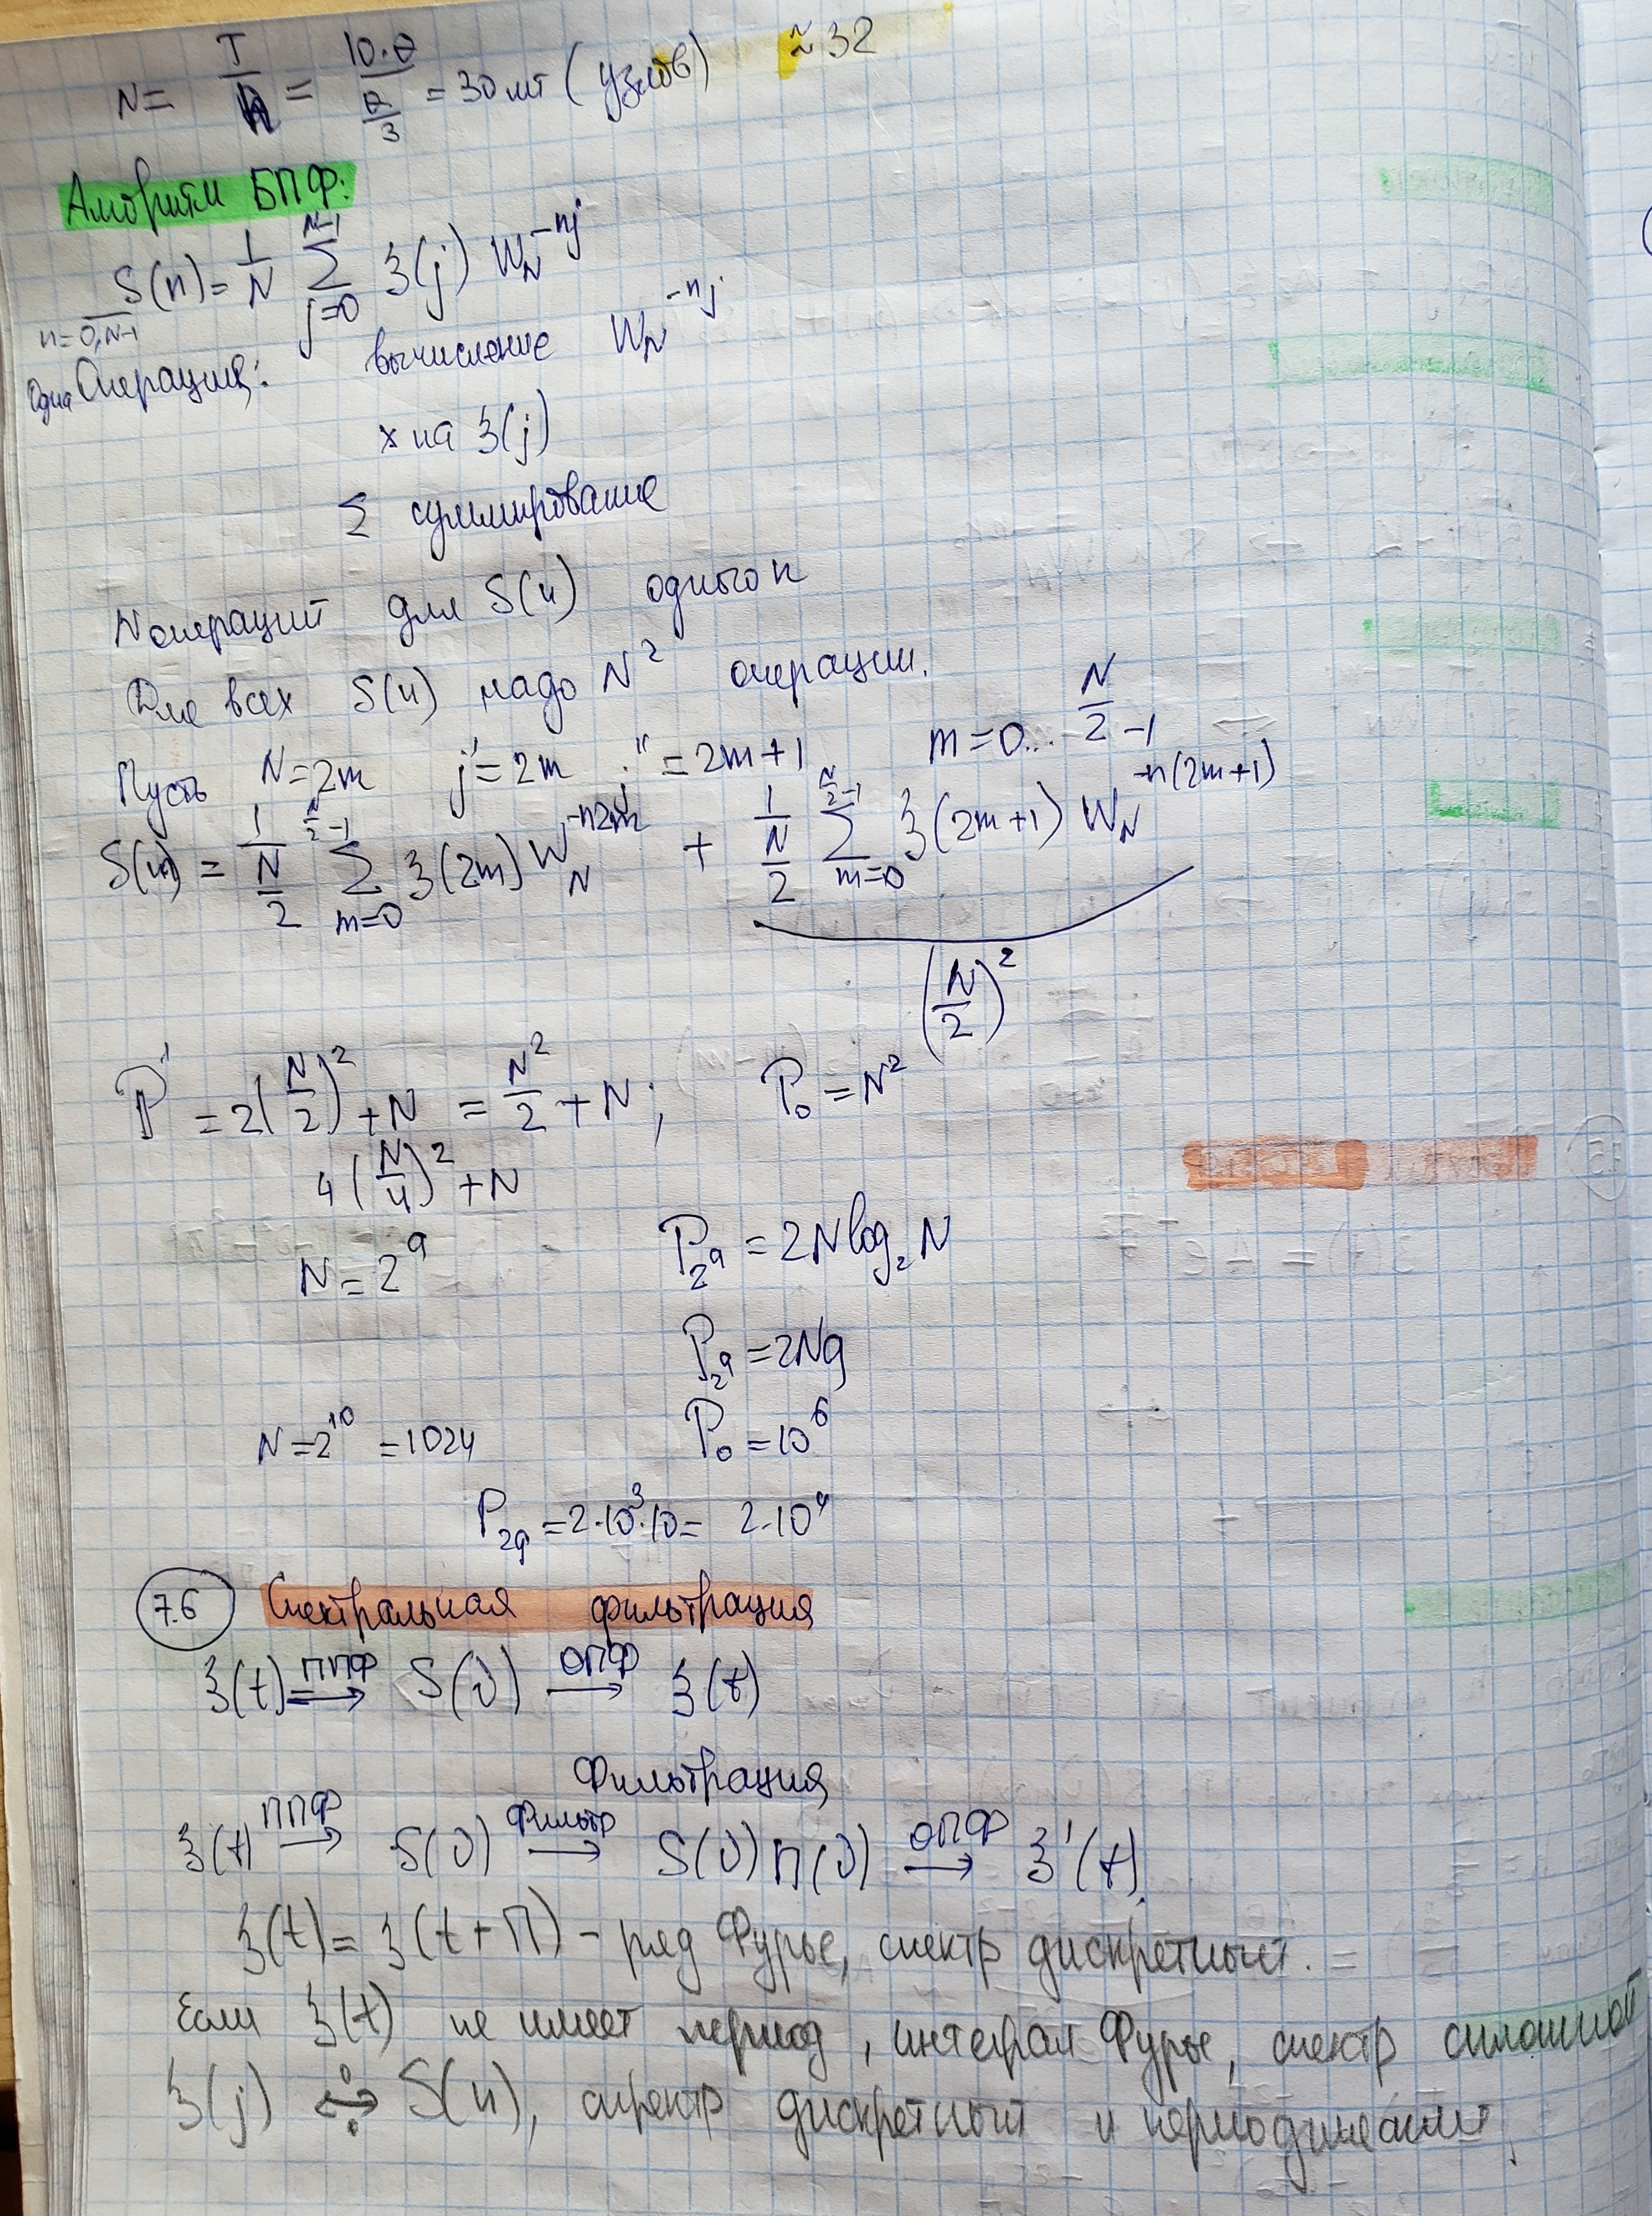 N = T/h = 10·θ / (θ/3) = 30 шт (узлов) ≈ 32
Алгоритм БПФ:
S(n) = 1/N Σ_{j=0}^{N-1} ξ(j) W_N^{-nj}
n = 0,N-1
Одна Операция: вычисление W_N^{-nj}
× на ξ(j)
Σ суммирование
N операций для S(n) одного n
Для всех S(n) надо N² операции.
Пусть N = 2m j' = 2m j'' = 2m+1 m = 0... N/2 -1
S(n) = 1/(N/2) Σ_{m=0}^{N/2-1} ξ(2m) W_N^{-n2m} + 1/(N/2) Σ_{m=0}^{N/2-1} ξ(2m+1) W_N^{-n(2m+1)}
(N/2)²
P' = 2(N/2)² + N = N²/2 + N; P₀ = N²
4(N/4)² + N
N = 2^q P_{2^q} = 2N log₂ N
P_{2^q} = 2Nq
N = 2^{10} = 1024 P₀ = 10⁶
P_{2q} = 2·10³·10 = 2·10⁴
7.6 Спектральная фильтрация
ξ(t) ⟹ППФ S(ν) ⟶ОПФ ξ(t)
Фильтрация
ξ(t) ⟶ППФ S(ν) ⟶Фильтр S(ν)П(ν) ⟶ОПФ ξ'(t).
ξ(t) = ξ(t+П) – ряд Фурье, спектр дискретный.
Если ξ(t) не имеет период, интеграл Фурье, спектр сплошной
ξ(j) ↔ S(n), спектр дискретный и периодический.